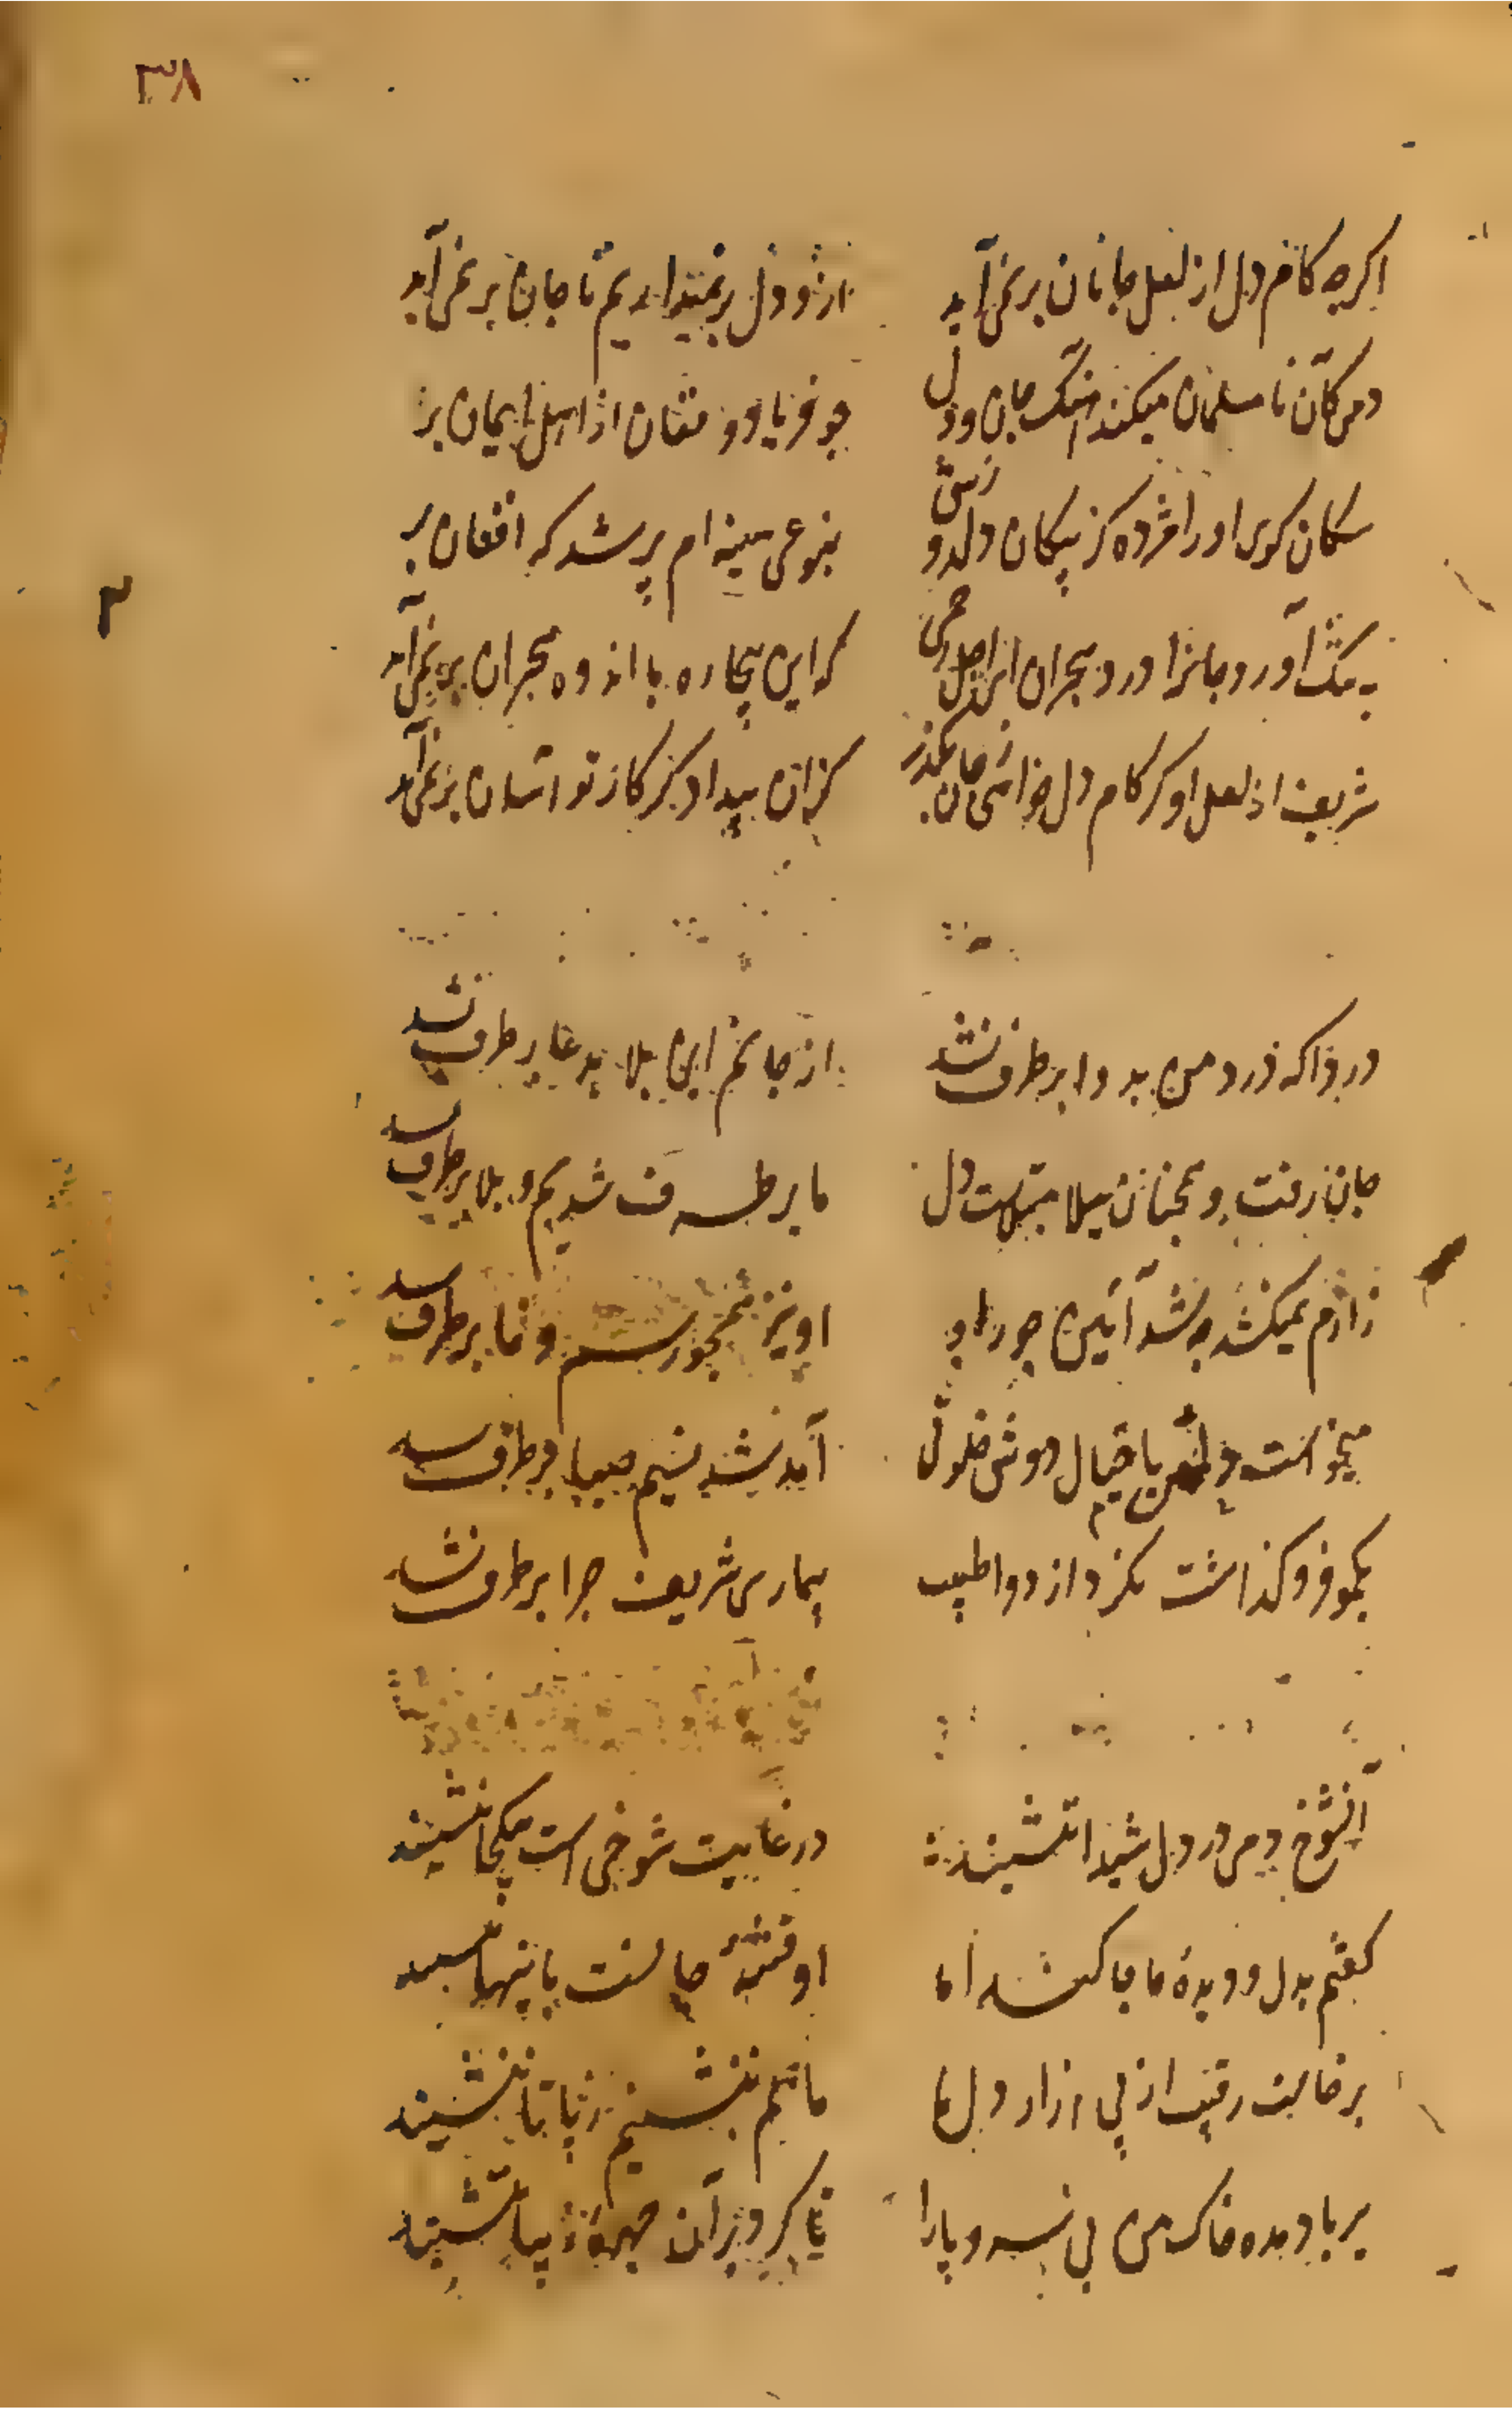 ۳۸
اگرچه کام دل از لعل جانان برنمی‌آید
ازو دل برنمیداریم تا جان برنمی‌آید
دمی کان نامسلمان میکند آهنگ جان و دل
چو فریاد و فغان از اهل ایمان بر
سکان کوی او را مژده کز پیکان دلدوزش
بنوعی سینه ام پر شد که افغان بر
۳
آورد جانرا درد هجران
که این بیچاره با اندوه هجران برنمی‌آید
شریف از لعل او گر کام دل خواهی ز جان بگذر
کزان بیدادگر کار تو آسان برنمی‌آید
دردا که درد من بدوا برطرف نشد
از جانم این بلا بدعا برطرف نشد
جان رفت و همچنان ببلا مبتلاست دل
ما برطرف شدیم و بلا برطرف نشد
زارم نمیکشد نشد آئین جور ازو
او نیز همچو رسم وفا برطرف نشد
میخواست دلم با خیال دوش خلوتی
آمد نسیم صبا برطرف نشد
یکمو فرو گذاشت نکرد از دوا طبیب
بیماری شریف چرا برطرف نشد
آنشوخ دمی در دل شیدا ننشیند
در غایت شوخی است بیکجا ننشیند
گفتم بدل و دیده ما جا کند اما
او فتنهٔ جانست بانها ننشیند
برخاست رقیب از پی آزار دل ما
ما هم ننشینیم ز پا تا ننشیند
بر باد مده خاک من بی سر و پا را
تا گرد بر آن چهرهٔ زیبا ننشیند